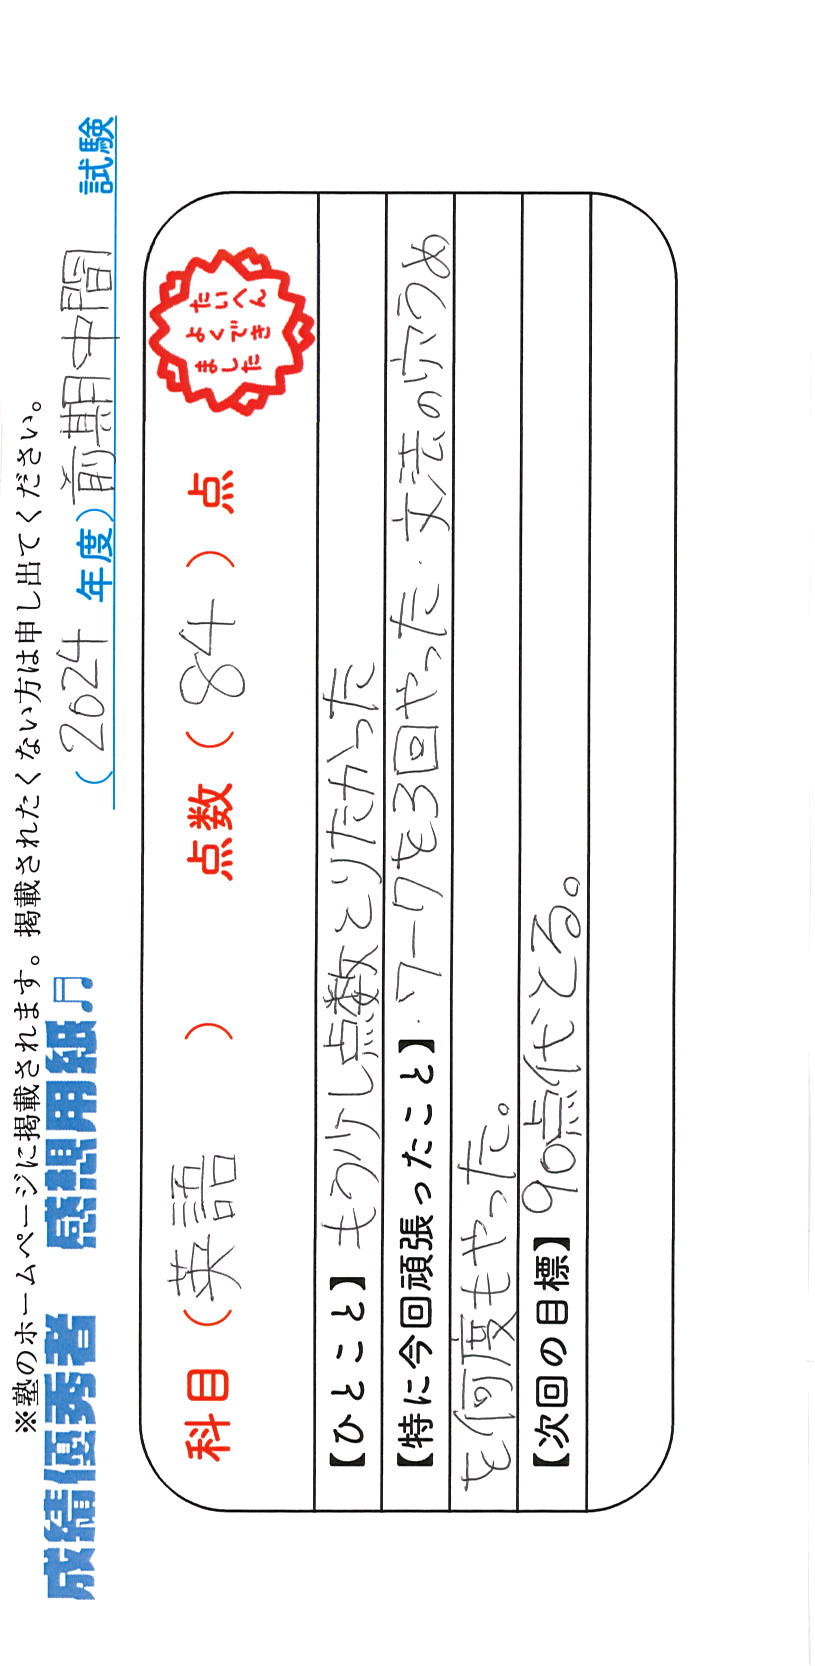 ※塾のホームページに掲載されます。掲載されたくない方は申し出てください。
成績優秀者 感想用紙♫
(2024 年度)前期中間 試験
科目(英語 ) 点数(84)点
たいへん
よくでき
ました
【ひとこと】もう少し点数とりたかった
【特に今回頑張ったこと】・ワークを3回やった・文法の穴うめ
を何度もやった。
【次回の目標】90点代とる。